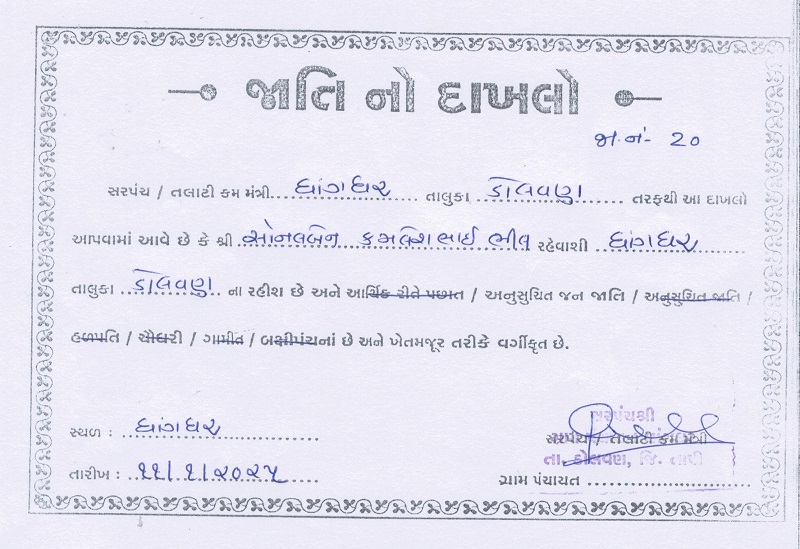 જાતિ નો દાખલો
જા.નં- 20
સરપંચ / તલાટી કમ મંત્રી ધાંગધર તાલુકા ડોલવણ તરફથી આ દાખલો
આપવામાં આવે છે કે શ્રી સોનલબેન કમલેશભાઈ ભીલ રહેવાશી ધાંગધર
તાલુકા ડોલવણ ના રહીશ છે અને આર્થિક રીતે પછાત / અનુસુચિત જન જાતિ / અનુસુચિત જાતિ /
હળપતિ / ચૌધરી / ગામીત / બક્ષીપંચનાં છે અને ખેતમજૂર તરીકે વર્ગીકૃત છે.
સ્થળ : ધાંગધર
તારીખ : ૧૧/૧/૨૦૨૫
સરપંચશ્રી
સરપંચ / તલાટી કમ મંત્રી
તા. ડોલવણ, જિ. તાપી
ગ્રામ પંચાયત